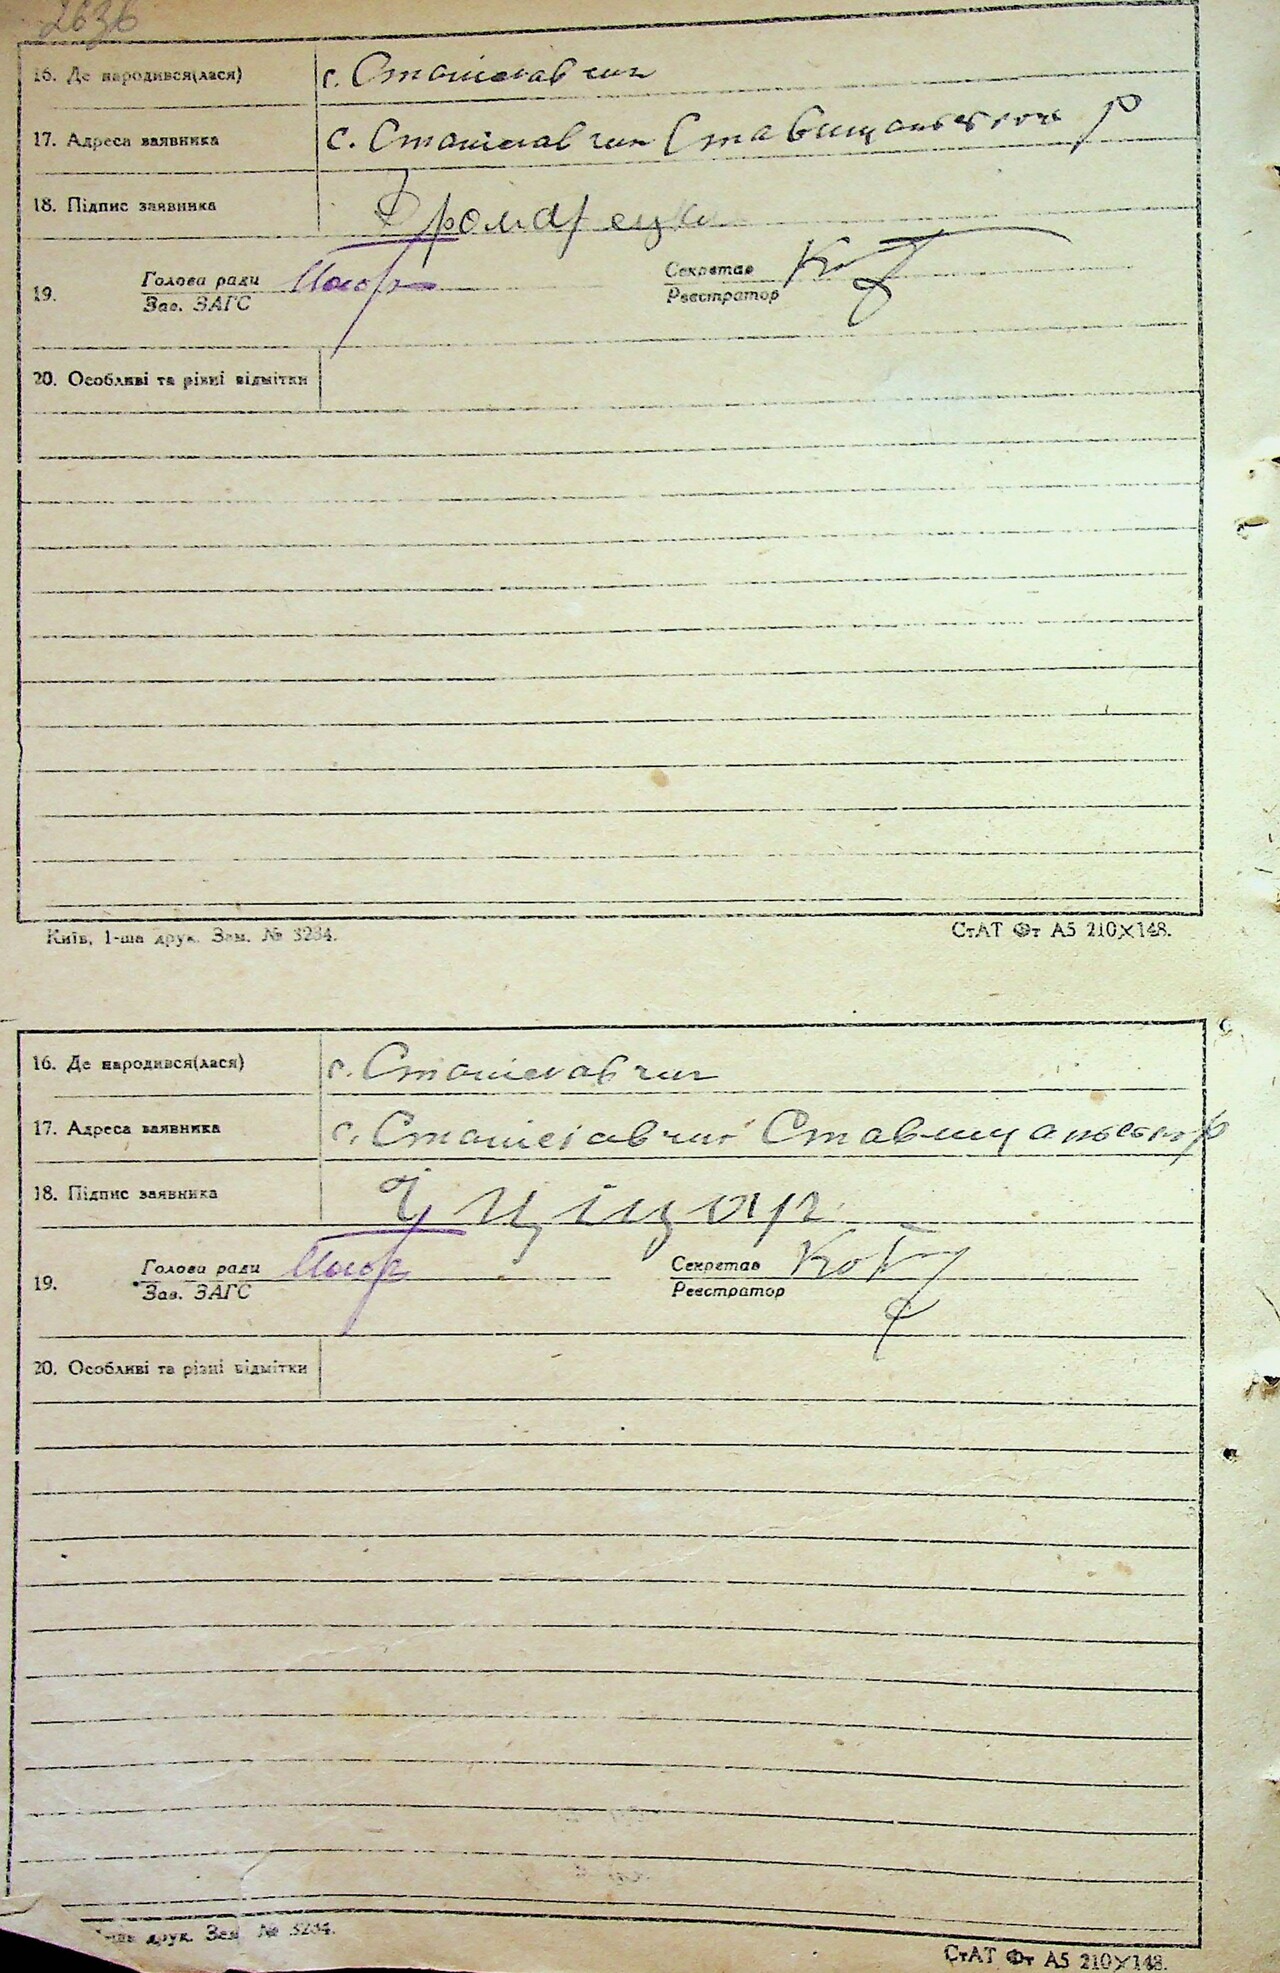 263б
16. Де народився(лася) с. Станіславчик
17. Адреса заявника с. Станіславчик Ставищанський р
18. Підпис заявника
19. Голова ради Секретар
Зав. ЗАГС Реєстратор
20. Особливі та різні відмітки
Київ, 1-ша друк. Зам. № 3234. СтАТ Фт А5 210×148.
16. Де народився(лася) с. Станіславчик
17. Адреса заявника с. Станіславчик Ставищанськ р
18. Підпис заявника
19. Голова ради Секретар
Зав. ЗАГС Реєстратор
20. Особливі та різні відмітки
друк. Зам № 3234. СтАТ Фт А5 210×148.